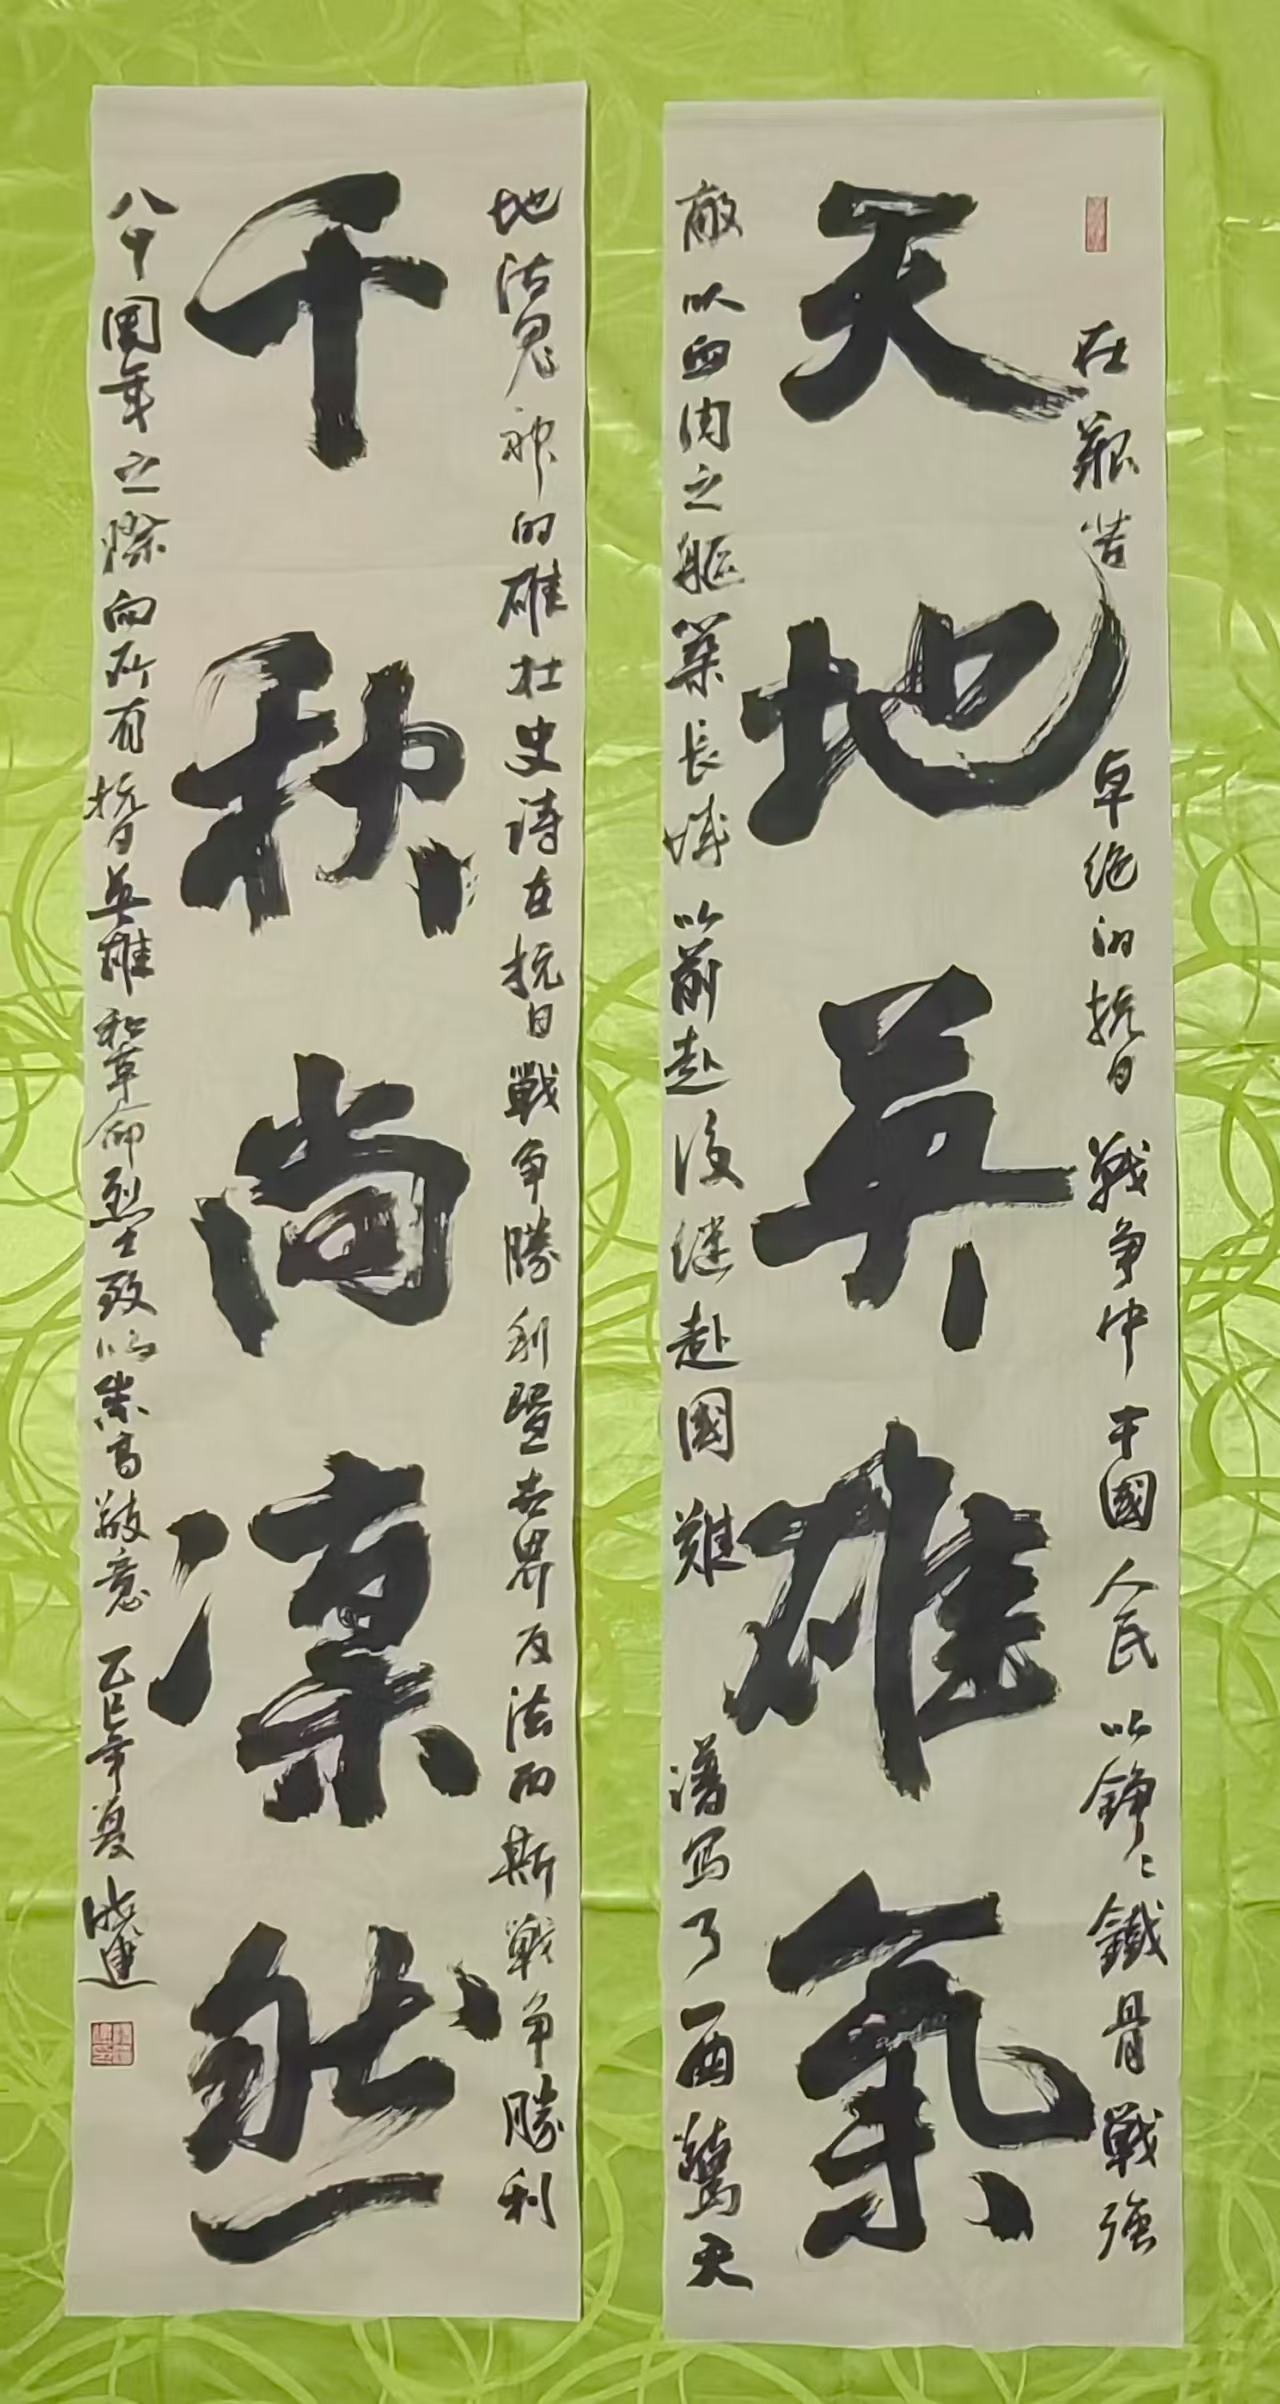 在艱苦卓绝的抗日戰争中中國人民以錚々鐵骨戰强
天地英雄氣
敵以血肉之軀築長城以前赴後继赴國難譜写了一曲驚天
地泣鬼神的雄壮史诗在抗日戰争勝利暨世界反法西斯戰争勝利
千秋尚凜然
八十周年之際向所有抗日英雄和革命烈士致以崇高敬意乙巳年夏